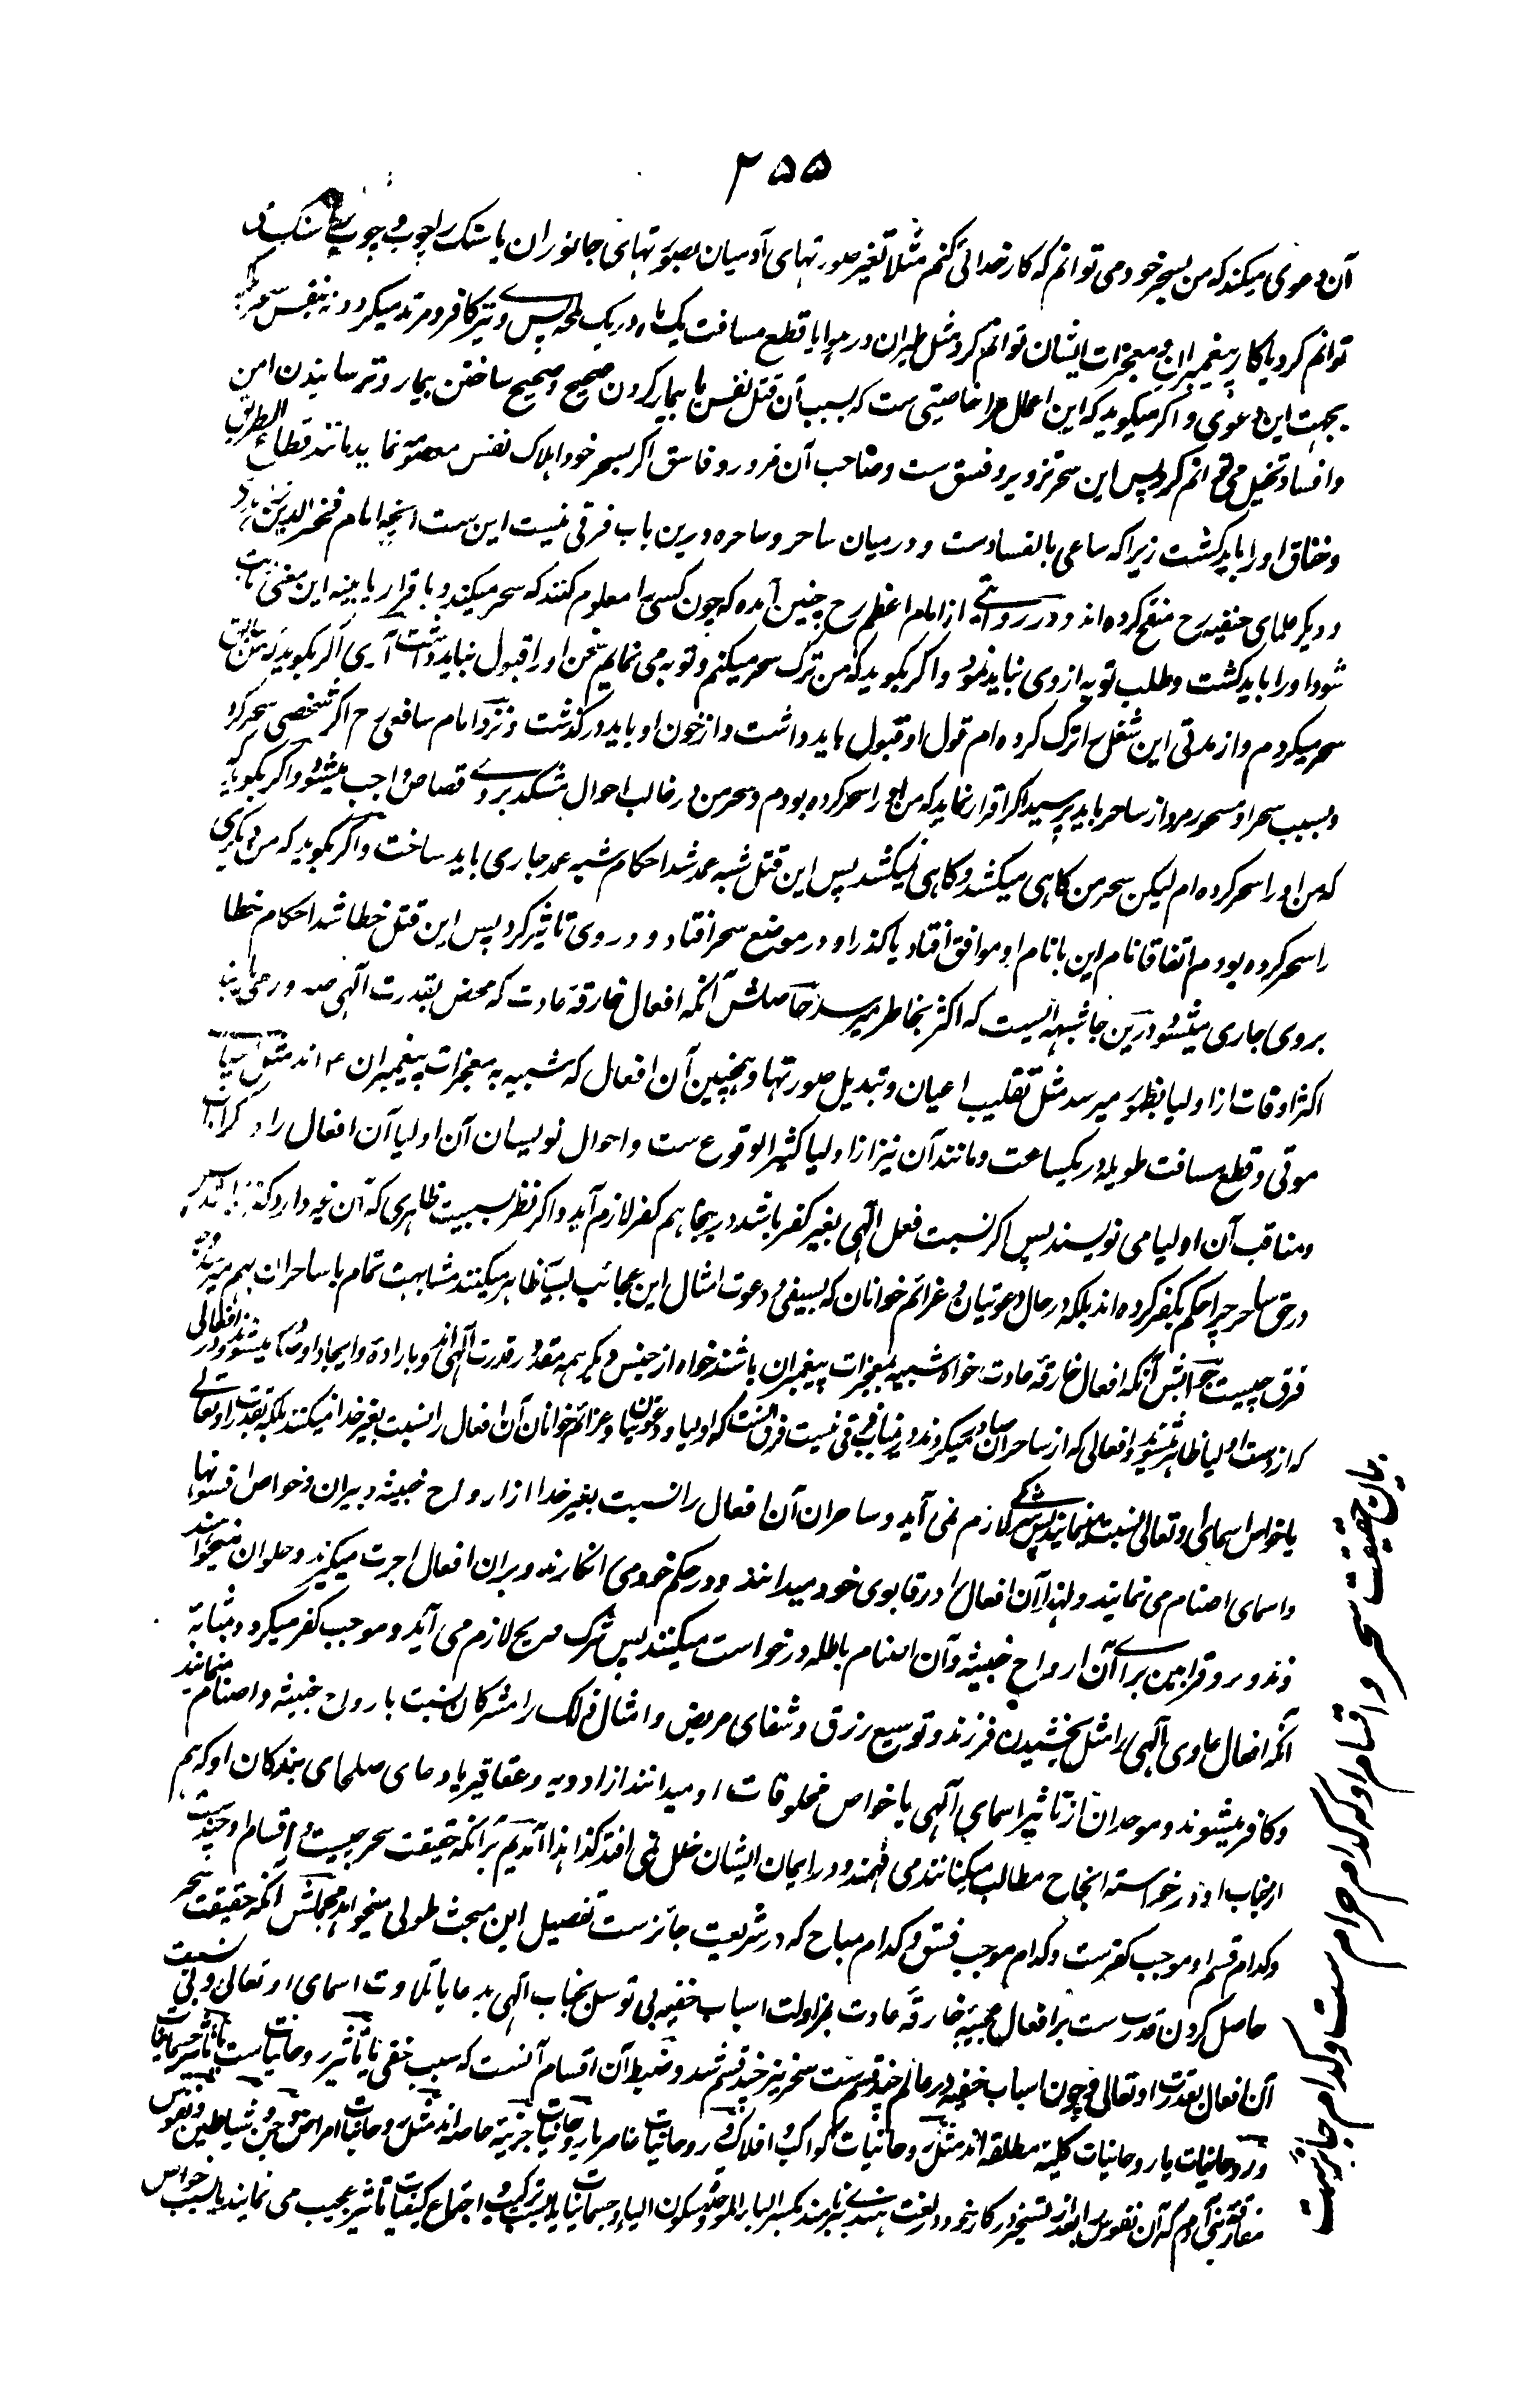 ۲۵۵
آن دعوی میکند که من بسحر خود می توانم که کار خدائی کنم مثلا تغیر صورتهای آدمیان بصورتهای جانوران یا سنگ را چوب و چوب را سنگ
توانم کرد یا کار پیغمبران و معجزات ایشان توانم کرد مثل طیران در هوا یا قطع مسافت یک ماه در یک لمحه پس وے نیز کافر و مرتد میگردد نه بنفس سحر بلکه
بجهت این دعوی و اگر میگوید که این اعمال مرا خاصیتی ست که بسبب آن قتل نفس یا بیمار کردن صحیح و صحیح ساختن بیمار و ترسانیدن امن
و افساد تخیل می توانم کرد پس این سحر تزویر و فسق ست و صاحب آن مزور و فاسق اگر بسحر خود اهلاک نفس معصومه نماید مانند قطاع الطریق
و خناق او را باید کشت زیرا که ساعی بالفسادست و در میان ساحر و ساحره درین باب فرقی نیست این ست آنچه امام فخر الدین
و دیگر علمای حنفیه رح منقح کرده اند و در روایتے از امام اعظم رح چنین آمده که چون کسی را معلوم کنند که سحر میکند و باقرار یا بینه این معنی ثابت
شود او را باید کشت و طلب توبه از وی نباید نمود و اگر بگوید که من ترک سحر میکنم و توبه می نمایم سخن او را قبول نباید داشت آری اگر بگوید که من سابق
سحر میکردم و از مدتی این شغل را ترک کرده ام قول او قبول باید داشت و از خون او باید در گذشت و نزد امام شافعی رح اگر شخصی سحر کرد
و بسبب سحر او مسحور مرد از ساحر باید پرسید اگر اقرار نماید که من او را سحر کرده بودم و سحر من در غالب احوال میکشد بروے قصاص واجب میشود و اگر بگوید
که من او را سحر کرده ام لیکن سحر من گاهی میکشد و گاهی نمیکشد پس این قتل شبه عمد شد احکام شبه عمد جاری باید ساخت و اگر بگوید که من دیگری
را سحر کرده بودم اتفاقا نام این با نام او موافق افتاد یا گذر او در موضع سحر افتاد و در وی تاثیر کرد پس این قتل خطا شد احکام خطا
بروی جاری میشود درین جا شبهه ایست که اکثر بخاطر میرسد حاصلش آنکه افعال خارقه عادت که محض بقدرت الهی صدور می یابند
اکثر اوقات از اولیا بظهور میرسد مثل تقلیب اعیان و تبدیل صورتها و همچنین آن افعال که شبیه به معجزات پیغمبران ۴ اند مثل احیای
موتی و قطع مسافت طویله در یکساعت و مانند آن نیز از اولیا کثیر الوقوع ست و احوال نویسان آن اولیا آن افعال را در کرامات
و مناقب آن اولیا می نویسند پس اگر نسبت فعل الهی بغیر کفر باشد در ینجا هم کفر لازم آید و اگر نظر بسببیت ظاهری که آن غیر دارد کفر نباشد پس
در حق ساحر چرا حکم بکفر کرده اند بلکه در حال دعوتیان و عزائم خوانان که بسیفی و دعوت امثال این عجائب بسیار ظاهر میکنند مشابهت تمام با ساحران بهم میرسد وجه
فرق چیست جوابش آنکه افعال خارقه عادت خواه شبیه بمعجزات پیغمبران باشند خواه از جنس دیگر همه مقدور قدرت الهی اند و باراده و ایجاد او صادر میشوند و در افعالی
که از دست اولیا ظاهر میشوند و افعالی که از ساحران صادر میگردند درینباب فرقی نیست فرق اینست که اولیا و دعوتیان و عزائم خوانان آن افعال را نسبت بغیر خدا نمیکنند بلکه بقدرت او تعالے
یا خواص اسمای او تعالی نسبت مینمایند پس شرکے لازم نمی آید و ساحران آن افعال را نسبت بغیر خدا از ارواح خبیثه و پیران و خواص افسونها
و اسمای اصنام می نمایند و لهذا آن افعال را در قابوی خود میدانند و در حکم خود می انگارند و بران افعال اجرت میگیرند و حلوان میخواهند
و نذور و قرابین براے آن ارواح خبیثه و آن اصنام باطله درخواست میکنند پس شرک صریح لازم می آید و موجب کفر میگردد بمثابه
آنکه افعال عادی الهی را مثل بخشیدن فرزند و توسیع رزق و شفای مریض و امثال ذلک را مشرکان نسبت بارواح خبیثه و اصنام مینمایند
و کافر میشوند و موحدان از تاثیر اسمای الهی یا خواص مخلوقات او میدانند از ادویه و عقاقیر یا دعای صلحای بندگان او که هم
از جناب او درخواسته انجاح مطالب میکنانند می فهمند و در ایمان ایشان خلل نمی افتد کذا هذا آمدیم بر آنکه حقیقت سحر چیست و اقسام او چند ست
و کدام قسم او موجب کفرست و کدام موجب فسق و کدام مباح که در شریعت جائزست تفصیل این مبحث طولی میخواهد مجملش آنکه حقیقت سحر
حاصل کردن قدرت ست بر افعال عجیبه خارقه عادت بمزاولت اسباب خفیه بی توسل بجناب الهی بدعا یا تلاوت اسمای او تعالی و بی نسبت
آن افعال بقدرت او تعالی و چون اسباب خفیه در عالم چند قسم ست سحر نیز چند قسم شد و ضبط آن اقسام آنست که سبب خفی یا تاثیر روحانیات ست یا تاثیر جسمانیات
و روحانیات یا روحانیات کلیه مطلقه اند مثل روحانیات کواکب و افلاک و روحانیات عناصر یا روحانیات جزئیه خاصه اند مثل روحانیات امراض و جن و شیاطین و نفوس
مفارقه بنی آدم که آن نفوس را بعد از تسخیر در کار خود و در لغت هندی بیر نامند بکسر الباء الموحده و سکون الیاء و جسمانیات یا بسبب ترکیب و اجتماع کیفیات تاثیر عجیب می نمایند یا بسبب خواص
بیان حقیقت سحر و اقسام او که کدام حرام ست و کدام جائز ست